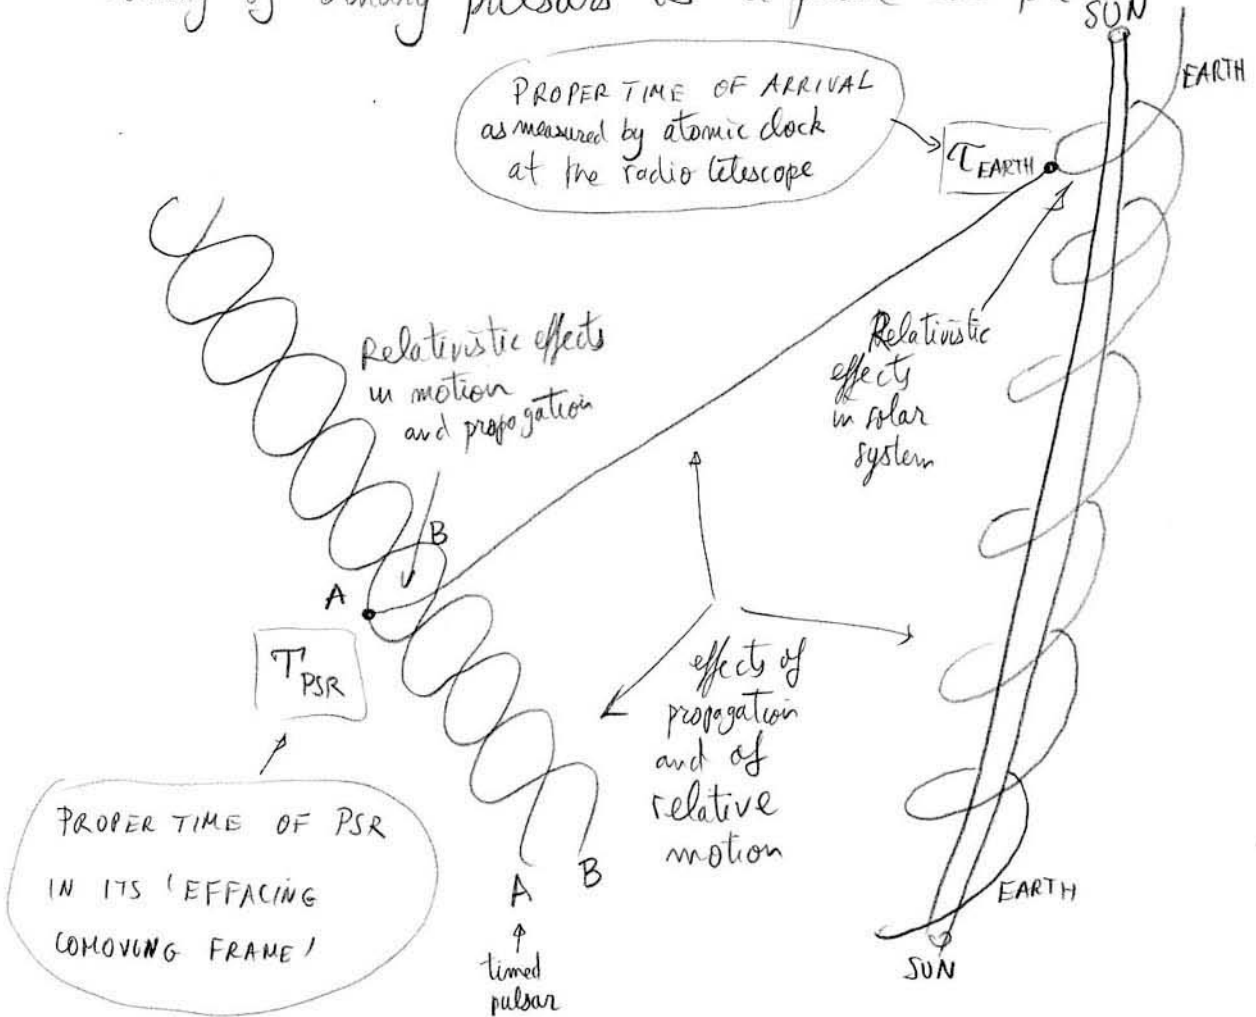 of binary pulsars
SUN
EARTH
PROPER TIME OF ARRIVAL
as measured by atomic clock
at the radio telescope
τ EARTH
Relativistic effects
in motion
and propagation
Relativistic
effects
in solar
system
B
A
T PSR
effects of
propagation
and of
relative
motion
PROPER TIME OF PSR
IN ITS 'EFFACING
COMOVING FRAME'
A
B
timed
pulsar
EARTH
SUN